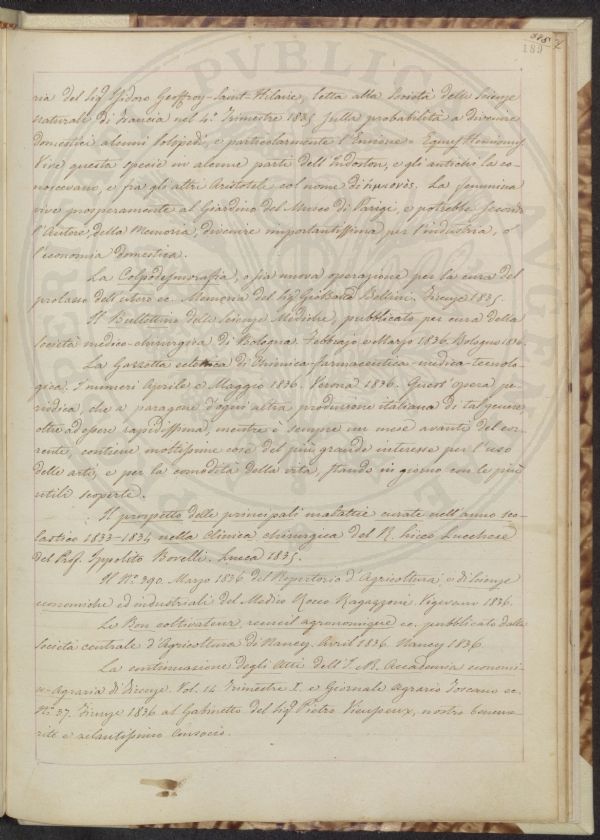 189
ria del Sig.r Isidoro Geoffroy-Saint-Hilaire, letta alla Società delle Scienze
Naturali di Francia nel 4.o Trimestre 1835 sulla probabilità a divenire
domestici alcuni solipedi, e particolarmente l'Emione - Equus Hemionus
Vive questa specie in alcune parti dell'Indostan, e gli antichi la co-
noscevano, e fra gli altri Aristotele col nome di ημιονὸς. La femmina
vive prosperamente al Giardino del Museo di Parigi, e potrebbe secondo
l'Autore, della Memoria, divenire importantissima per l'industria, o
l'economia domestica.
La Colpodesmorafia, o sia nuova operazione per la cura del
prolasso dell'utero ec. Memoria del Sig.r Gio Batta Bellini. Firenze 1835.
Il Bullettino delle Scienze Mediche, pubblicato per cura della
Società medico-chirurgica di Bologna. Febbrajo e Marzo 1836. Bologna 1836.
La Gazzetta eclettica di Chimica-farmaceutica-medica-tecnolo-
gica. I numeri Aprile e Maggio 1836. Verona 1836. Quest'opera pe-
riodica, che a paragone d'ogni altra produzione italiana di tal genere,
oltre ad essere rapidissima, mentre è sempre un mese avanti del cor-
rente, contiene moltissime cose del più grande interesse per l'uso
delle arti, e per la comodità della vita, stando in giorno con le più
utili scoperte.
Il prospetto delle principali malattie curate nell'anno sco-
lastico 1833-1834 nella clinica chirurgica del R. Liceo Lucchese
del Prof. Ippolito Borelli. Lucca 1835.
Il N.o 390. Marzo 1836 del Repertorio d'Agricoltura, e di Scienze
economiche ed industriali del Medico Rocco Ragazzoni. Vigevano 1836.
Le Bon cultivateur, recueil agronomique ec. pubblicato dalla
Società centrale d'Agricoltura di Nancy. Avril 1836. Nancy 1836.
La continuazione degli Atti dell'I. e R. Accademia economi-
co-Agraria di Firenze. Vol. 14 Trimestre I. e Giornale agrario Toscano ec.
N.o 37. Firenze 1836 al Gabinetto del Sig.r Pietro Vieusseux, nostro beneme-
rito e zelantissimo Consocio.